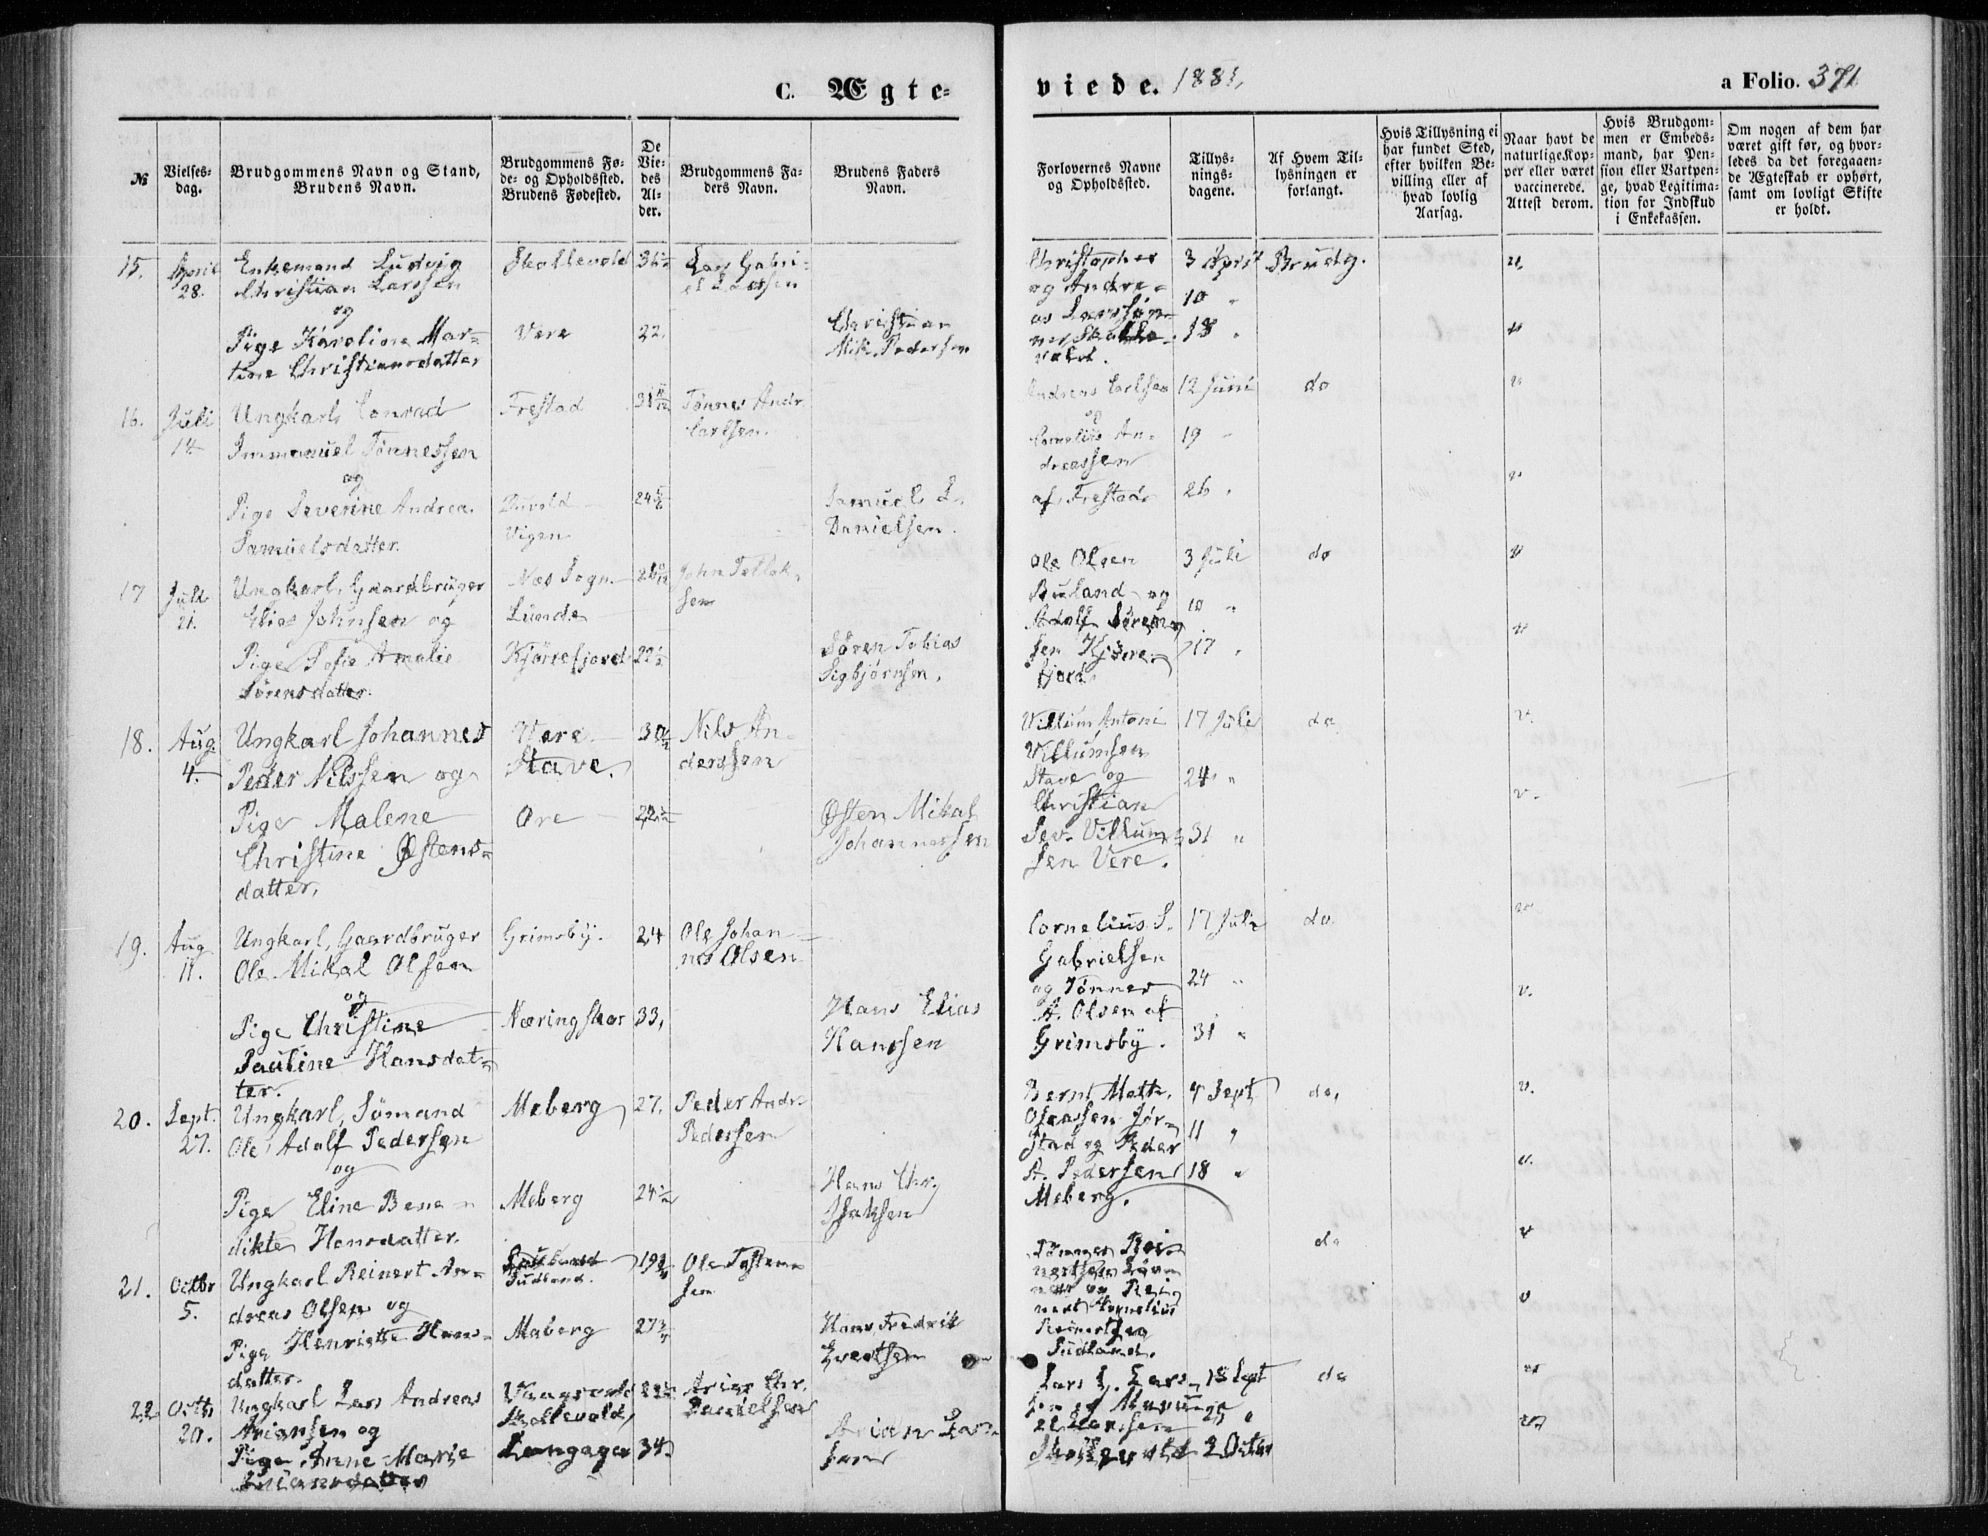 C. Ægte=
viede. 1881.
a Folio. 371
№
Vielses-
dag.
Brudgommens Navn og Stand,
Brudens Navn.
Brudgommens Fø-
de- og Opholdssted.
Brudens Fødested.
De
Vie-
des
Al-
der.
Brudgommens Fa-
ders Navn.
Brudens Faders
Navn.
Forlovernes Navne
og Opholdssted.
Tillys-
nings-
dagene.
Af Hvem Til-
lysningen er
forlangt.
Hvis Tillysning ei
har fundet Sted,
efter hvilken Be-
villing eller af
hvad lovlig
Aarsag.
Naar havt de
naturlige Kop-
per eller været
vaccinerede.
Attest derom.
Hvis Brudgom-
men er Embeds-
mand, har Pen-
sion eller Vartpen-
ge, hvad Legitima-
tion for Indskud
i Enkekassen.
Om nogen af dem har
været gift før, og hvor-
ledes da det foregaaen-
de Ægteskab er ophørt,
samt om lovligt Skifte
er holdt.
15.
April
28.
Enkemand Ludvig
Christian Larssen
og
Pige Karoline Mar-
tine Christiansdatter
Skollevold
Vere
22.
Lars Gabri-
el Larssen
Christian
Mik. Pedersen
Christopher
og Andre-
as Larssøn-
ner Skolle-
vold.
3 April
10 "
18 "
Brudg.
16.
Juli
14
Ungkarl Conrad
Immanuel Tønnessen
og
Pige Severine Andrea
Samuelsdatter.
Frestad
Vigen
Tønnes Andr.
Carlsen.
Samuel L.
Danielsen.
Andreas Carlsen
og
Cornelius An-
dreassen
af Frestad
12 Juni
19 "
26 "
do
17
Juli
21.
Ungkarl, Gaardbruger
Elias Johnsen og
Pige Sofie Amalie
Sørensdatter.
Næs Sogn
Lunde
Kjørrefjord
John Tollak-
sen
Søren Tobias
Sigbjørnsen.
Ole Olsen
Buland og
Adolf Søren-
sen Kjørre-
fjord.
3 Juli
10 "
17 "
do
18.
Aug
4.
Ungkarl Johannes
Peder Nilssen og
Pige Malene
Christine Østens-
datter.
Vere
Stave.
Ore
Nils An-
derssen
Østen Mikal
Johannessen
Villum Antoni
Villumsen
Stave og
Christian
Sev. Villum-
sen Vere.
17 Juli
24 "
31 "
do
19.
Aug
11.
Ungkarl, Gaardbruger
Ole Mikal Olsen
og
Pige Christine
Pauline Hansdat-
ter.
Grimsby.
Næringskar
24
33,
Ole Johan-
nes Olsen
Hans Elias
Hanssen
Cornelius S.
Gabrielsen
og Tønnes
A. Olsen af
Grimsby.
17 Juli
24 "
31 "
do
20.
Sept.
27.
Ungkarl, Sømand
Ole Adolf Pedersen
og
Pige Eline Bene-
dikte Hansdatter.
Meberg
Meberg
27.
Peder Andr.
Pedersen
Hans Chr.
Isaksen
Bernt Math.
Olaussen Jør-
stad og Peder
A. Pedersen
Meberg.
4 Sept
11 "
18 "
do,
21.
Octbr
5.
Ungkarl Reinert An-
dreas Olsen og
Pige Henriette Hans-
datter.
Pudland.
Maberg
Ole Tosten-
sen
Hans Fredrik
Evertsen
nert Kornelius
Reinertsen
Pudland.
do
22
Octb
20.
Ungkarl Lars Andreas
Ariansen og
Pige Anne Marie
Ariansdatter
Skollevold,
Langager
34
Arian Chr.
Danielsen
Arian Lar-
sen
Lars L. Lars-
Skollevold
18 Sept
25 "
2 Octbr
do